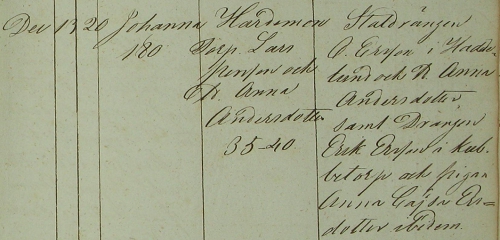 Dec 13 20 Johanna Hardemon Staldrängen
180 Torp. Lars O. Ersson i Hadde-
Jonson och lund och H. Anna
H. Anna Andersdotter
Andersdotter samt Drängen
35-40. Erik Ersson i Kub-
betorp och pigan
Anna Cajsa Ers=
dotter ibidem.